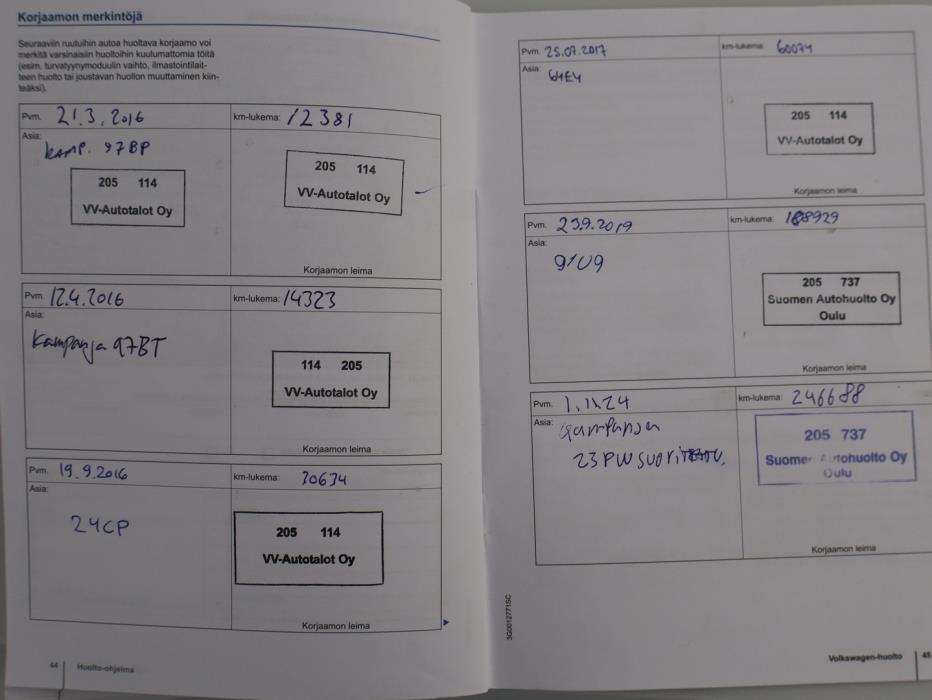 Korjaamon merkintöjä
Seuraaviin ruutuihin autoa huoltava korjaamo voi
merkitä varsinaisiin huoltoihin kuulumattomia töitä
(esim. turvatyynymoduulin vaihto, ilmastointilait-
teen huolto tai joustavan huollon muuttaminen kiin-
teäksi).
Pvm. 21.3.2016 km-lukema: 12381
Asia: kamp. 97BP
205 114
VV-Autotalot Oy
205 114
VV-Autotalot Oy
Korjaamon leima
Pvm. 12.4.2016 km-lukema: 14323
Asia:
Kampanja 97BT
114 205
VV-Autotalot Oy
Korjaamon leima
Pvm. 19.9.2016 km-lukema: 30634
Asia:
24CP
205 114
VV-Autotalot Oy
Korjaamon leima
44 Huolto-ohjelma
Pvm. 25.07.2017 km-lukema: 60074
Asia:
205 114
VV-Autotalot Oy
Korjaamon leima
Pvm. 23.9.2019 km-lukema: 188929
Asia:
91U9
205 737
Suomen Autohuolto Oy
Oulu
Korjaamon leima
Pvm. 1.11.24 km-lukema: 246688
Asia:
23PW
205 737
Suomen Autohuolto Oy
Oulu
Korjaamon leima
3G0012771SC
Volkswagen-huolto 45